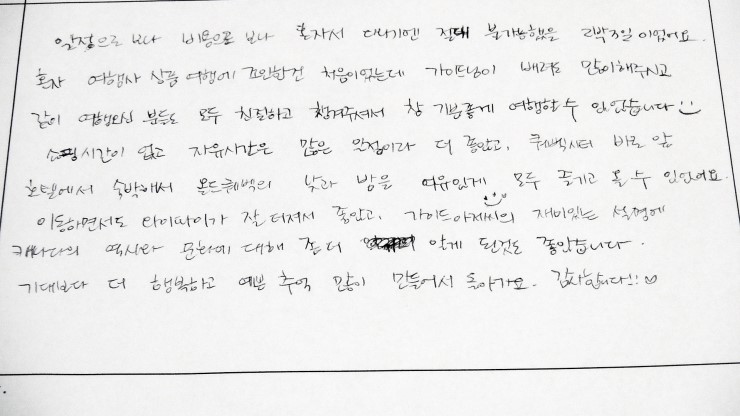 일정으로 보나 비용으로 보나 혼자서 다니기엔 절대 불가능했을 2박3일이었어요.
혼자 여행사 상품 여행에 조인한건 처음이었는데 가이드님이 배려도 많이해주시고
같이 여행오신 분들도 모두 친절하고 챙겨주셔서 참 기분좋게 여행할 수 있었습니다
쇼핑시간이 없고 자유시간은 많은 일정이라 더 좋았고, 퀘벡시티 바로 앞
호텔에서 숙박해서 올드퀘벡의 낮과 밤을 여유있게 모두 즐기고 올 수 있었어요.
이동하면서도 와이파이가 잘 터져서 좋았고, 가이드아저씨의 재미있는 설명에
캐나다의 역사와 문화에 대해 좀 더 알게 된것도 좋았습니다.
기대보다 더 행복하고 예쁜 추억 많이 만들어서 돌아가요. 감사합니다!!♡